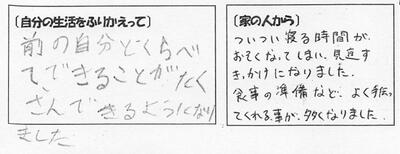 〔自分の生活をふりかえって〕
前の自分とくらべ
て、できることがたく
さんできるようになり
ました
〔家の人から〕
ついつい寝る時間が、
おそくなってしまい、見直す
きっかけになりました。
食事の準備など、よく手伝っ
てくれる事が、多くなりました。